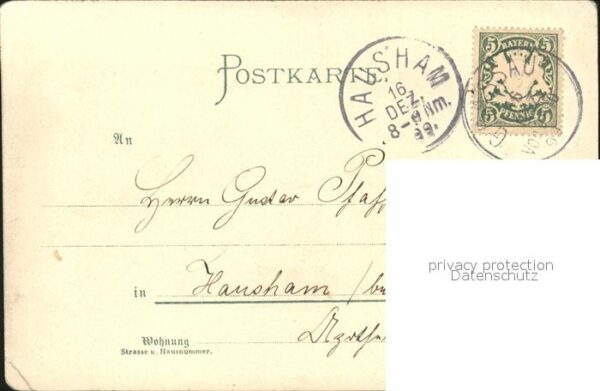 POSTKARTE
HAUSHAM
16
DEZ.
8-9 Nm.
99.
5 BAYERN 5
5 PFENNIG 5
An
Herrn Gustav Pfaff
privacy protection
Datenschutz
in Hausham
Wohnung
Strasse u. Hausnummer.